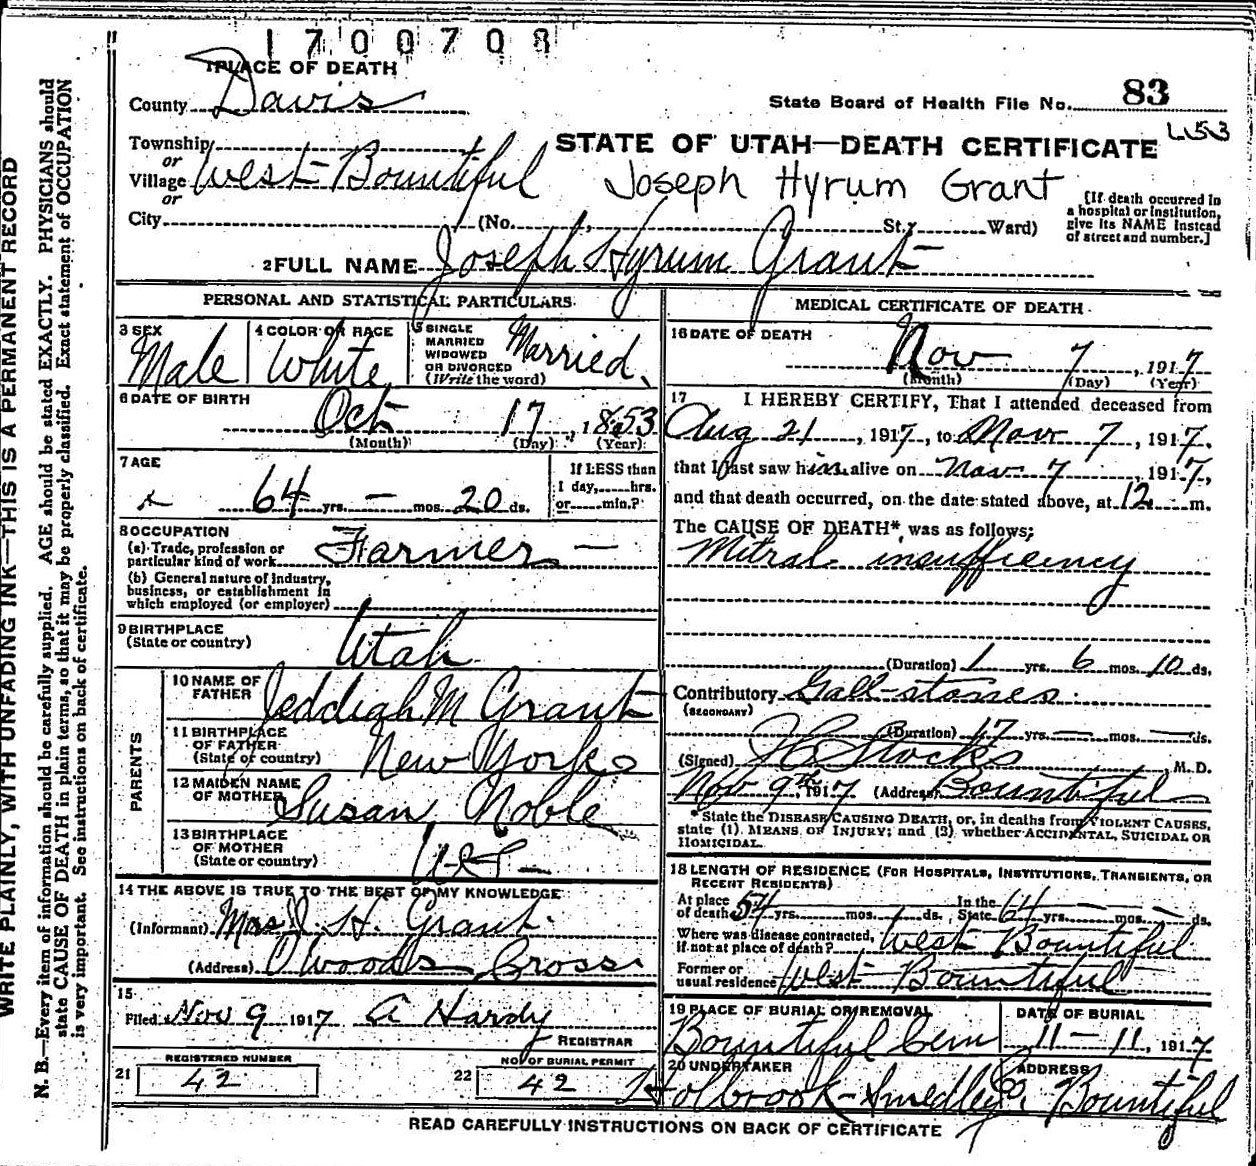 1700708
1 PLACE OF DEATH
County Davis
State Board of Health File No. 83
Township
or
Village West Bountiful
or
City (No. St.; Ward)
STATE OF UTAH—DEATH CERTIFICATE
Joseph Hyrum Grant
[If death occurred in
a hospital or institution,
give its NAME instead
of street and number.]
2 FULL NAME Joseph Hyrum Grant
PERSONAL AND STATISTICAL PARTICULARS
3 SEX
Male
4 COLOR OR RACE
White
5 SINGLE
MARRIED
WIDOWED
OR DIVORCED
(Write the word)
Married
6 DATE OF BIRTH
Oct 17, 1853
(Month) (Day) (Year)
7 AGE
64 yrs. — mos. 20 ds.
If LESS than
1 day,......hrs.
or......min.?
8 OCCUPATION
(a) Trade, profession or
particular kind of work Farmer —
(b) General nature of industry,
business, or establishment in
which employed (or employer)
9 BIRTHPLACE
(State or country)
Utah
PARENTS
10 NAME OF
FATHER Jeddiah M Grant
11 BIRTHPLACE
OF FATHER
(State or country) New York
12 MAIDEN NAME
OF MOTHER Susan Noble
13 BIRTHPLACE
OF MOTHER
(State or country)
14 THE ABOVE IS TRUE TO THE BEST OF MY KNOWLEDGE
(Informant) Mrs J. H. Grant
(Address) Woods Cross
15
Filed Nov 9 1917 A Hardy
REGISTRAR
21 REGISTERED NUMBER
42
22 NO. OF BURIAL PERMIT
42
MEDICAL CERTIFICATE OF DEATH
16 DATE OF DEATH
Nov 7, 1917
(Month) (Day) (Year)
17 I HEREBY CERTIFY, That I attended deceased from
Aug 21, 1917, to Nov 7, 1917.
that I last saw him alive on Nov 7, 1917,
and that death occurred, on the date stated above, at 12 m.
The CAUSE OF DEATH* was as follows:
Mitral insufficiency
(Duration) 1 yrs. 6 mos. 10 ds.
Contributory Gall-stones
(SECONDARY)
(Duration) 17 yrs. — mos. — ds.
(Signed) Stocks M. D.
Nov 9th, 1917 (Address) Bountiful
*State the DISEASE CAUSING DEATH, or, in deaths from VIOLENT CAUSES,
state (1) MEANS OF INJURY; and (2) whether ACCIDENTAL, SUICIDAL OR
HOMICIDAL.
18 LENGTH OF RESIDENCE (FOR HOSPITALS, INSTITUTIONS, TRANSIENTS, OR
RECENT RESIDENTS)
At place
of death 54 yrs. mos. ds. In the
State 64 yrs. — mos. — ds.
Where was disease contracted,
if not at place of death? West Bountiful
Former or
usual residence West Bountiful
19 PLACE OF BURIAL OR REMOVAL
Bountiful Cem
DATE OF BURIAL
11—11, 1917
20 UNDERTAKER
Holbrook-Smedley Co.
ADDRESS
Bountiful
READ CAREFULLY INSTRUCTIONS ON BACK OF CERTIFICATE
WRITE PLAINLY, WITH UNFADING INK—THIS IS A PERMANENT RECORD
N. B.—Every item of information should be carefully supplied. AGE should be stated EXACTLY. PHYSICIANS should
state CAUSE OF DEATH in plain terms, so that it may be properly classified. Exact statement of OCCUPATION
is very important. See instructions on back of certificate.